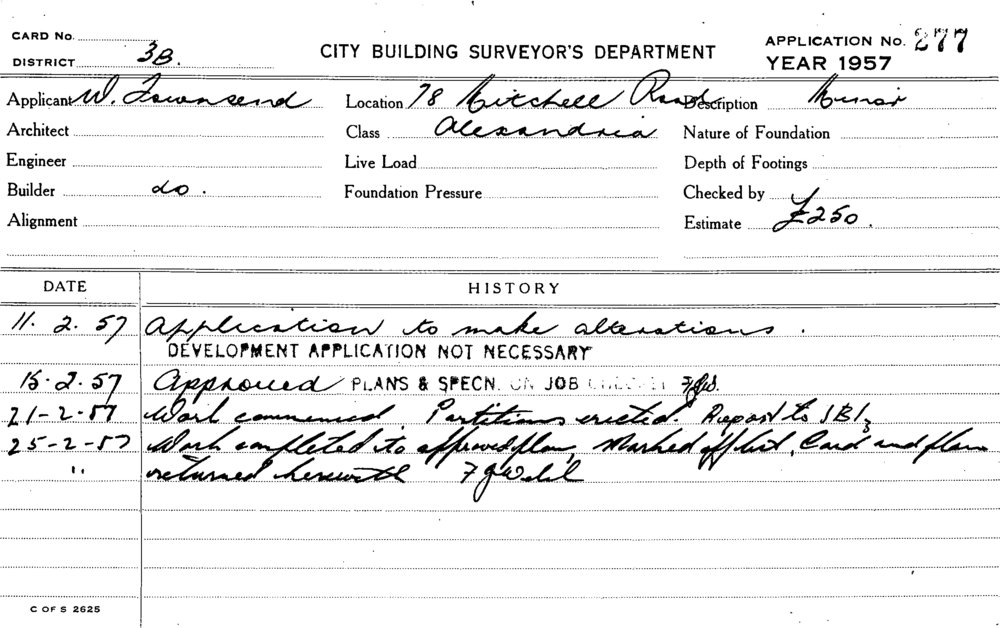 CARD No.
DISTRICT 3B.
CITY BUILDING SURVEYOR'S DEPARTMENT
APPLICATION No. 277
YEAR 1957
Applicant W. Townsend Location 78 Mitchell Road Description Minor
Architect Class Alexandria Nature of Foundation
Engineer Live Load Depth of Footings
Builder do. Foundation Pressure Checked by
Alignment Estimate £250.
DATE HISTORY
11. 2. 57 Application to make alterations.
DEVELOPMENT APPLICATION NOT NECESSARY
15. 2. 57 Approved PLANS & SPECN. ON JOB
21-2-57 Work commenced. Partitions erected. Report to
25-2-57 Work completed to approved plan, Marked off list, Card and plan
" returned herewith
C OF S 2625